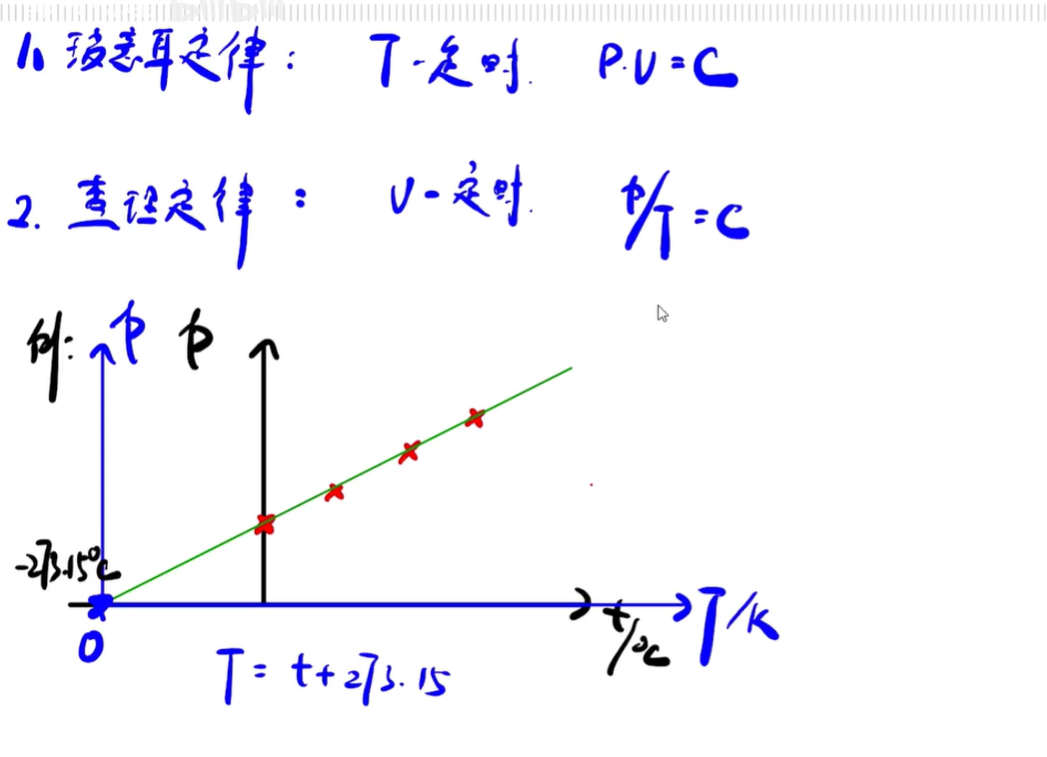 1、玻意耳定律： T一定时. P.V=C
2. 查理定律： V一定时. p/T=C
例: p p
-273.15℃
0 t/℃ T/K
T=t+273.15